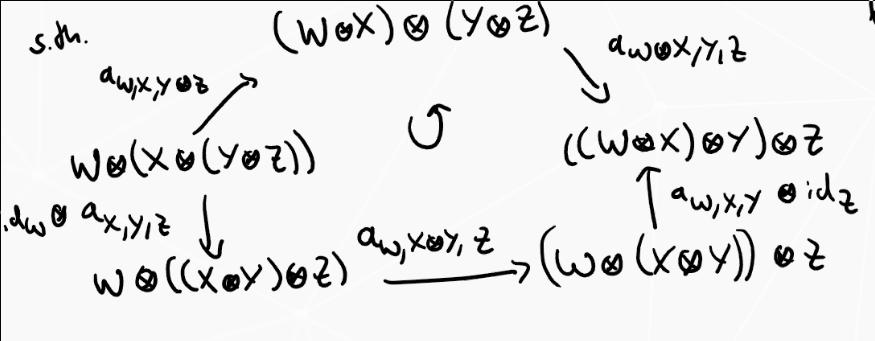 s.th.
(W⊗X)⊗(Y⊗Z)
a_{W,X,Y⊗Z}
a_{W⊗X,Y,Z}
W⊗(X⊗(Y⊗Z))
((W⊗X)⊗Y)⊗Z
id_W⊗a_{X,Y,Z}
a_{W,X,Y}⊗id_Z
W⊗((X⊗Y)⊗Z)
a_{W,X⊗Y,Z}
(W⊗(X⊗Y))⊗Z